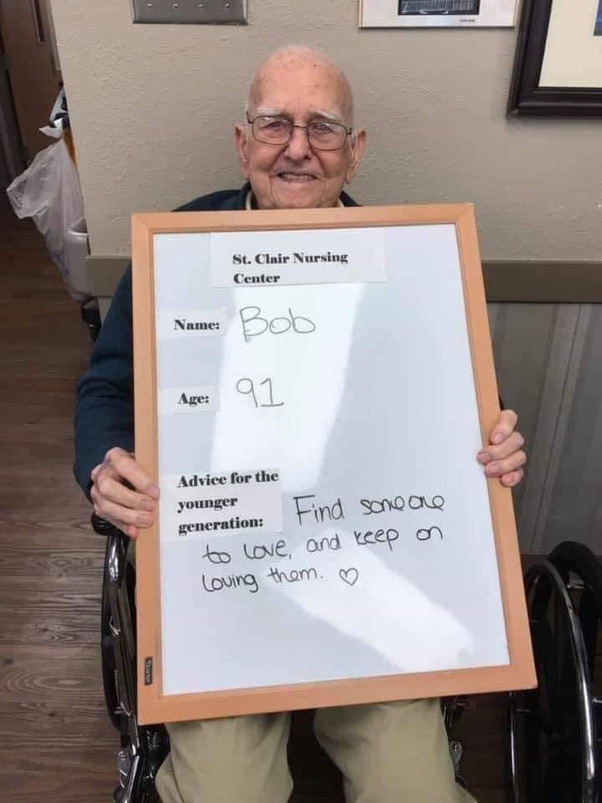 St. Clair Nursing
Center
Name: Bob
Age: 91
Advice for the
younger
generation: Find someone
to love, and keep on
loving them. ♡